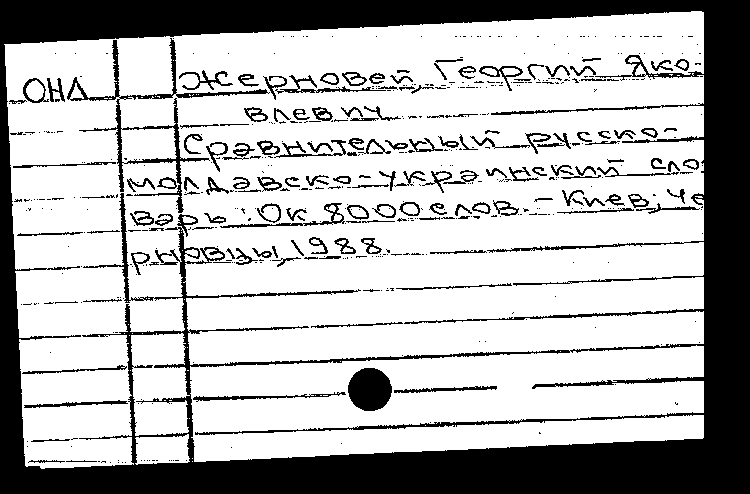 ОНЛ
Жерновей, Георгий Яко-
влевич
Сравнительный русско-
молдавско-украинский сло-
варь: Ок. 8000 слов. - Киев; Че
рновцы, 1988.